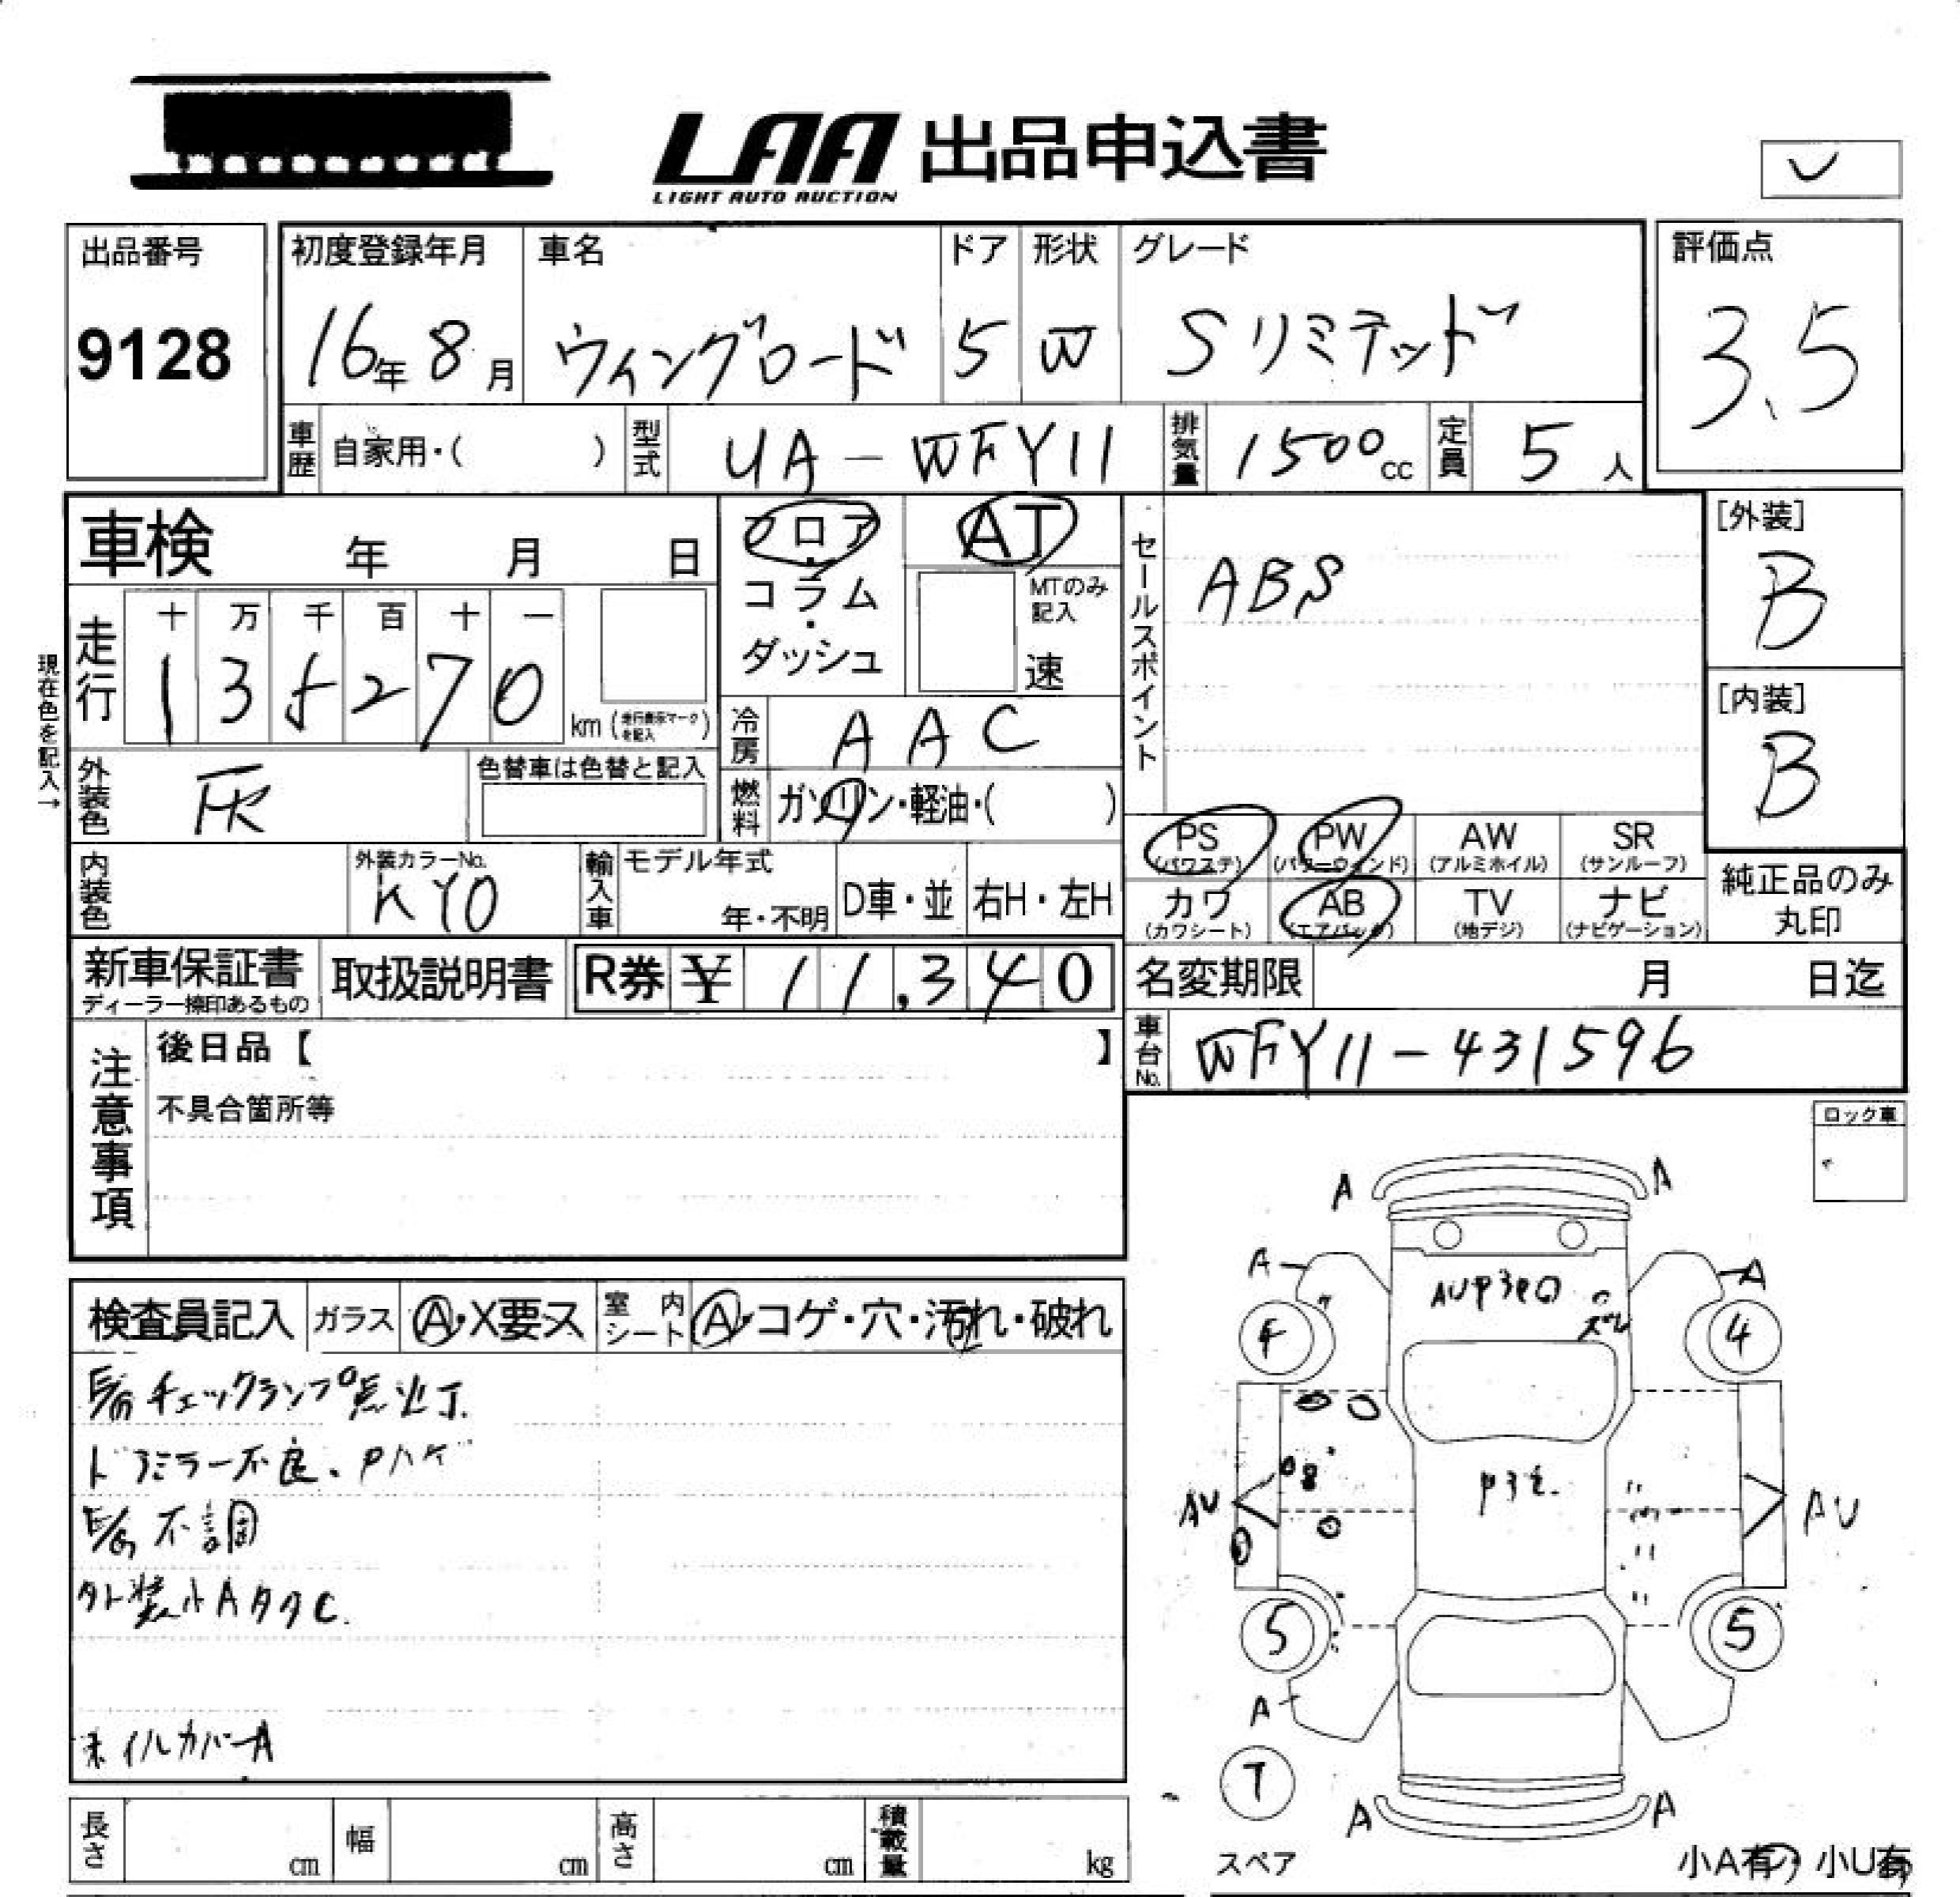 LAA 出品申込書
LIGHT AUTO AUCTION
出品番号
9128
初度登録年月
16年 8月
車名
ウィングロード
ドア
5
形状
W
グレード
Sリミテッド
評価点
3.5
車歴 自家用・( )
型式 UA-WFY11
排気量 1500cc
定員 5人
車検 年 月 日
フロア・コラム・ダッシュ
AT
MTのみ記入
速
セールスポイント
ABS
[外装]
B
[内装]
B
現在色を記入→
走行
十 万 千 百 十 一
1 3 5 2 7 0 km (走行表示マークを記入)
冷房 AAC
外装色
色替車は色替と記入
燃料 ガソリン・軽油・( )
PS (パワステ)
PW (パワーウィンド)
AW (アルミホイル)
SR (サンルーフ)
カワ (カワシート)
AB (エアバッグ)
TV (地デジ)
ナビ (ナビゲーション)
純正品のみ丸印
内装色
外装カラーNo.
KY0
輸入車
モデル年式
年・不明
D車・並
右H・左H
新車保証書
ディーラー捺印あるもの
取扱説明書
R券 ¥ 11,340
名変期限 月 日迄
車台No. WFY11-431596
注意事項
後日品【 】
不具合箇所等
ロック車
検査員記入
ガラス A・X要ス
室内シート A・コゲ・穴・汚れ・破れ
E/G チェックランプ点灯
ドアミラー不良、Pハゲ
E/G 不調
外装小AタタC
ホイルカバーA
A A
A A
4 4
AV AV
5 5
A
T
A A
スペア
小A有・小U有
長さ cm
幅 cm
高さ cm
積載量 kg